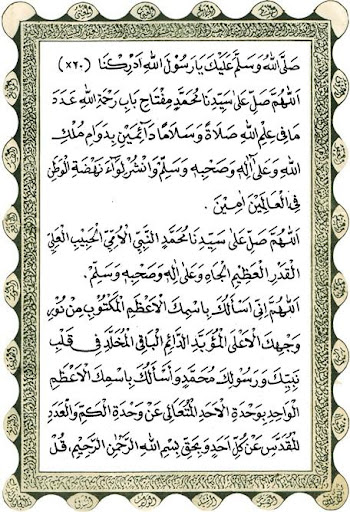 صَلَّى اللهُ وَسَلَّمَ عَلَيْكَ يَا رَسُوْلَ اللهِ اَدْرِكْنَا (٢٠×)
اَللّٰهُمَّ صَلِّ عَلَى سَيِّدِنَا مُحَمَّدٍ مِفْتَاحِ بَابِ رَحْمَةِ اللهِ عَدَدَ
مَا فِى عِلْمِ اللهِ صَلَاةً وَسَلَامًا دَآئِمَيْنِ بِدَوَامِ مُلْكِ
اللهِ وَعَلَى اٰلِهِ وَصَحْبِهِ وَسَلِّمْ وَانْشُرْ لِوَآءَ نَهْضَةِ الْوَطَنِ
فِى الْعَالَمِيْنَ اٰمِيْنَ .
اَللّٰهُمَّ صَلِّ عَلَى سَيِّدِنَا مُحَمَّدٍ النَّبِيِّ الْاُمِّيِّ الْحَبِيْبِ الْعَلِيِّ
الْقَدْرِ الْعَظِيْمِ الْجَاهِ وَعَلَى اٰلِهِ وَصَحْبِهِ وَسَلِّمْ .
اَللّٰهُمَّ اِنِّى اَسْأَلُكَ بِاسْمِكَ الْاَعْظَمِ الْمَكْتُوْبِ مِنْ نُوْرِ
وَجْهِكَ الْاَعْلَى الْمُؤَبَّدِ الدَّائِمِ الْبَاقِى الْمُخَلَّدِ فِى قَلْبِ
نَبِيِّكَ وَرَسُوْلِكَ مُحَمَّدٍ وَاَسْأَلُكَ بِاسْمِكَ الْاَعْظَمِ
الْوَاحِدِ بِوَحْدَةِ الْاَحَدِ الْمُتَعَالِى عَنْ وَحْدَةِ الْكَمِّ وَالْعَدَدِ
الْمُقَدَّسِ عَنْ كُلِّ اَحَدٍ وَبِحَقِّ بِسْمِ اللهِ الرَّحْمٰنِ الرَّحِيْمِ، قُلْ